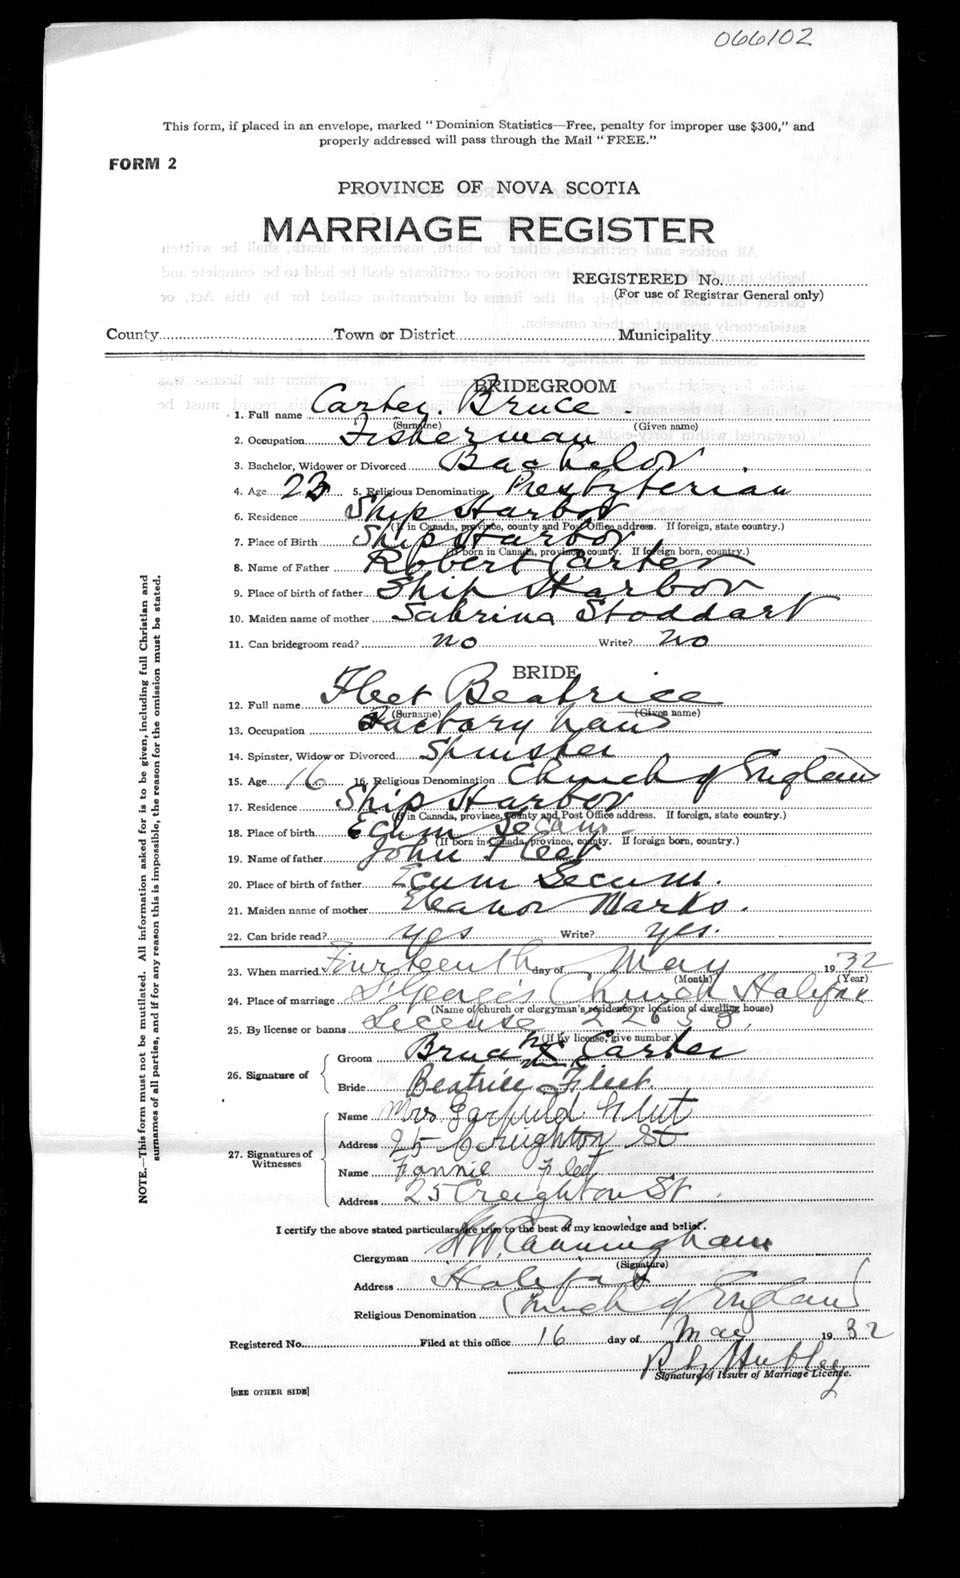 066102
This form, if placed in an envelope, marked "Dominion Statistics—Free, penalty for improper use $300," and
properly addressed will pass through the Mail "FREE."
FORM 2
PROVINCE OF NOVA SCOTIA
MARRIAGE REGISTER
REGISTERED No.
(For use of Registrar General only)
County Town or District Municipality
BRIDEGROOM
1. Full name Carter. Bruce
(Surname) (Given name)
2. Occupation Fisherman
3. Bachelor, Widower or Divorced Bachelor
4. Age 23 5. Religious Denomination Presbyterian
6. Residence Ship Harbor
(If in Canada, province, county and Post Office address. If foreign, state country.)
7. Place of Birth Ship Harbor
(If born in Canada, province, county. If foreign born, country.)
8. Name of Father Robert Carter
9. Place of birth of father Ship Harbor
10. Maiden name of mother Sabrina Stoddart
11. Can bridegroom read? no Write? no
BRIDE
12. Full name Fleet Beatrice
(Surname) (Given name)
13. Occupation Factory
14. Spinster, Widow or Divorced Spinster
15. Age 16 16. Religious Denomination Church of England
17. Residence Ship Harbor
(If in Canada, province, county and Post Office address. If foreign, state country.)
18. Place of birth Ecum Secum
(If born in Canada, province, county. If foreign born, country.)
19. Name of father John Fleet
20. Place of birth of father Ecum Secum.
21. Maiden name of mother Eleanor Marks.
22. Can bride read? yes Write? yes.
23. When married Fourteenth day of May 1932
(Month) (Year)
24. Place of marriage St George's Church Halifax
(Name of church or clergyman's residence or location of dwelling house)
25. By license or banns License
(If by license, give number.)
26. Signature of
Groom Bruce X Carter
Bride Beatrice Fleet
27. Signatures of Witnesses
Name Mrs Garfield
Address 25 Creighton St
Name Fannie Fleet
Address 25 Creighton St.
I certify the above stated particulars are true to the best of my knowledge and belief.
Clergyman H W Cunningham
(Signature)
Address Halifax
Religious Denomination Church of England
Registered No. Filed at this office 16 day of May 1932
Hubley
Signature of Issuer of Marriage Licence.
[SEE OTHER SIDE]
NOTE.—This form must not be mutilated. All information asked for is to be given, including full Christian and
surnames of all parties, and if for any reason this is impossible, the reason for the omission must be stated.